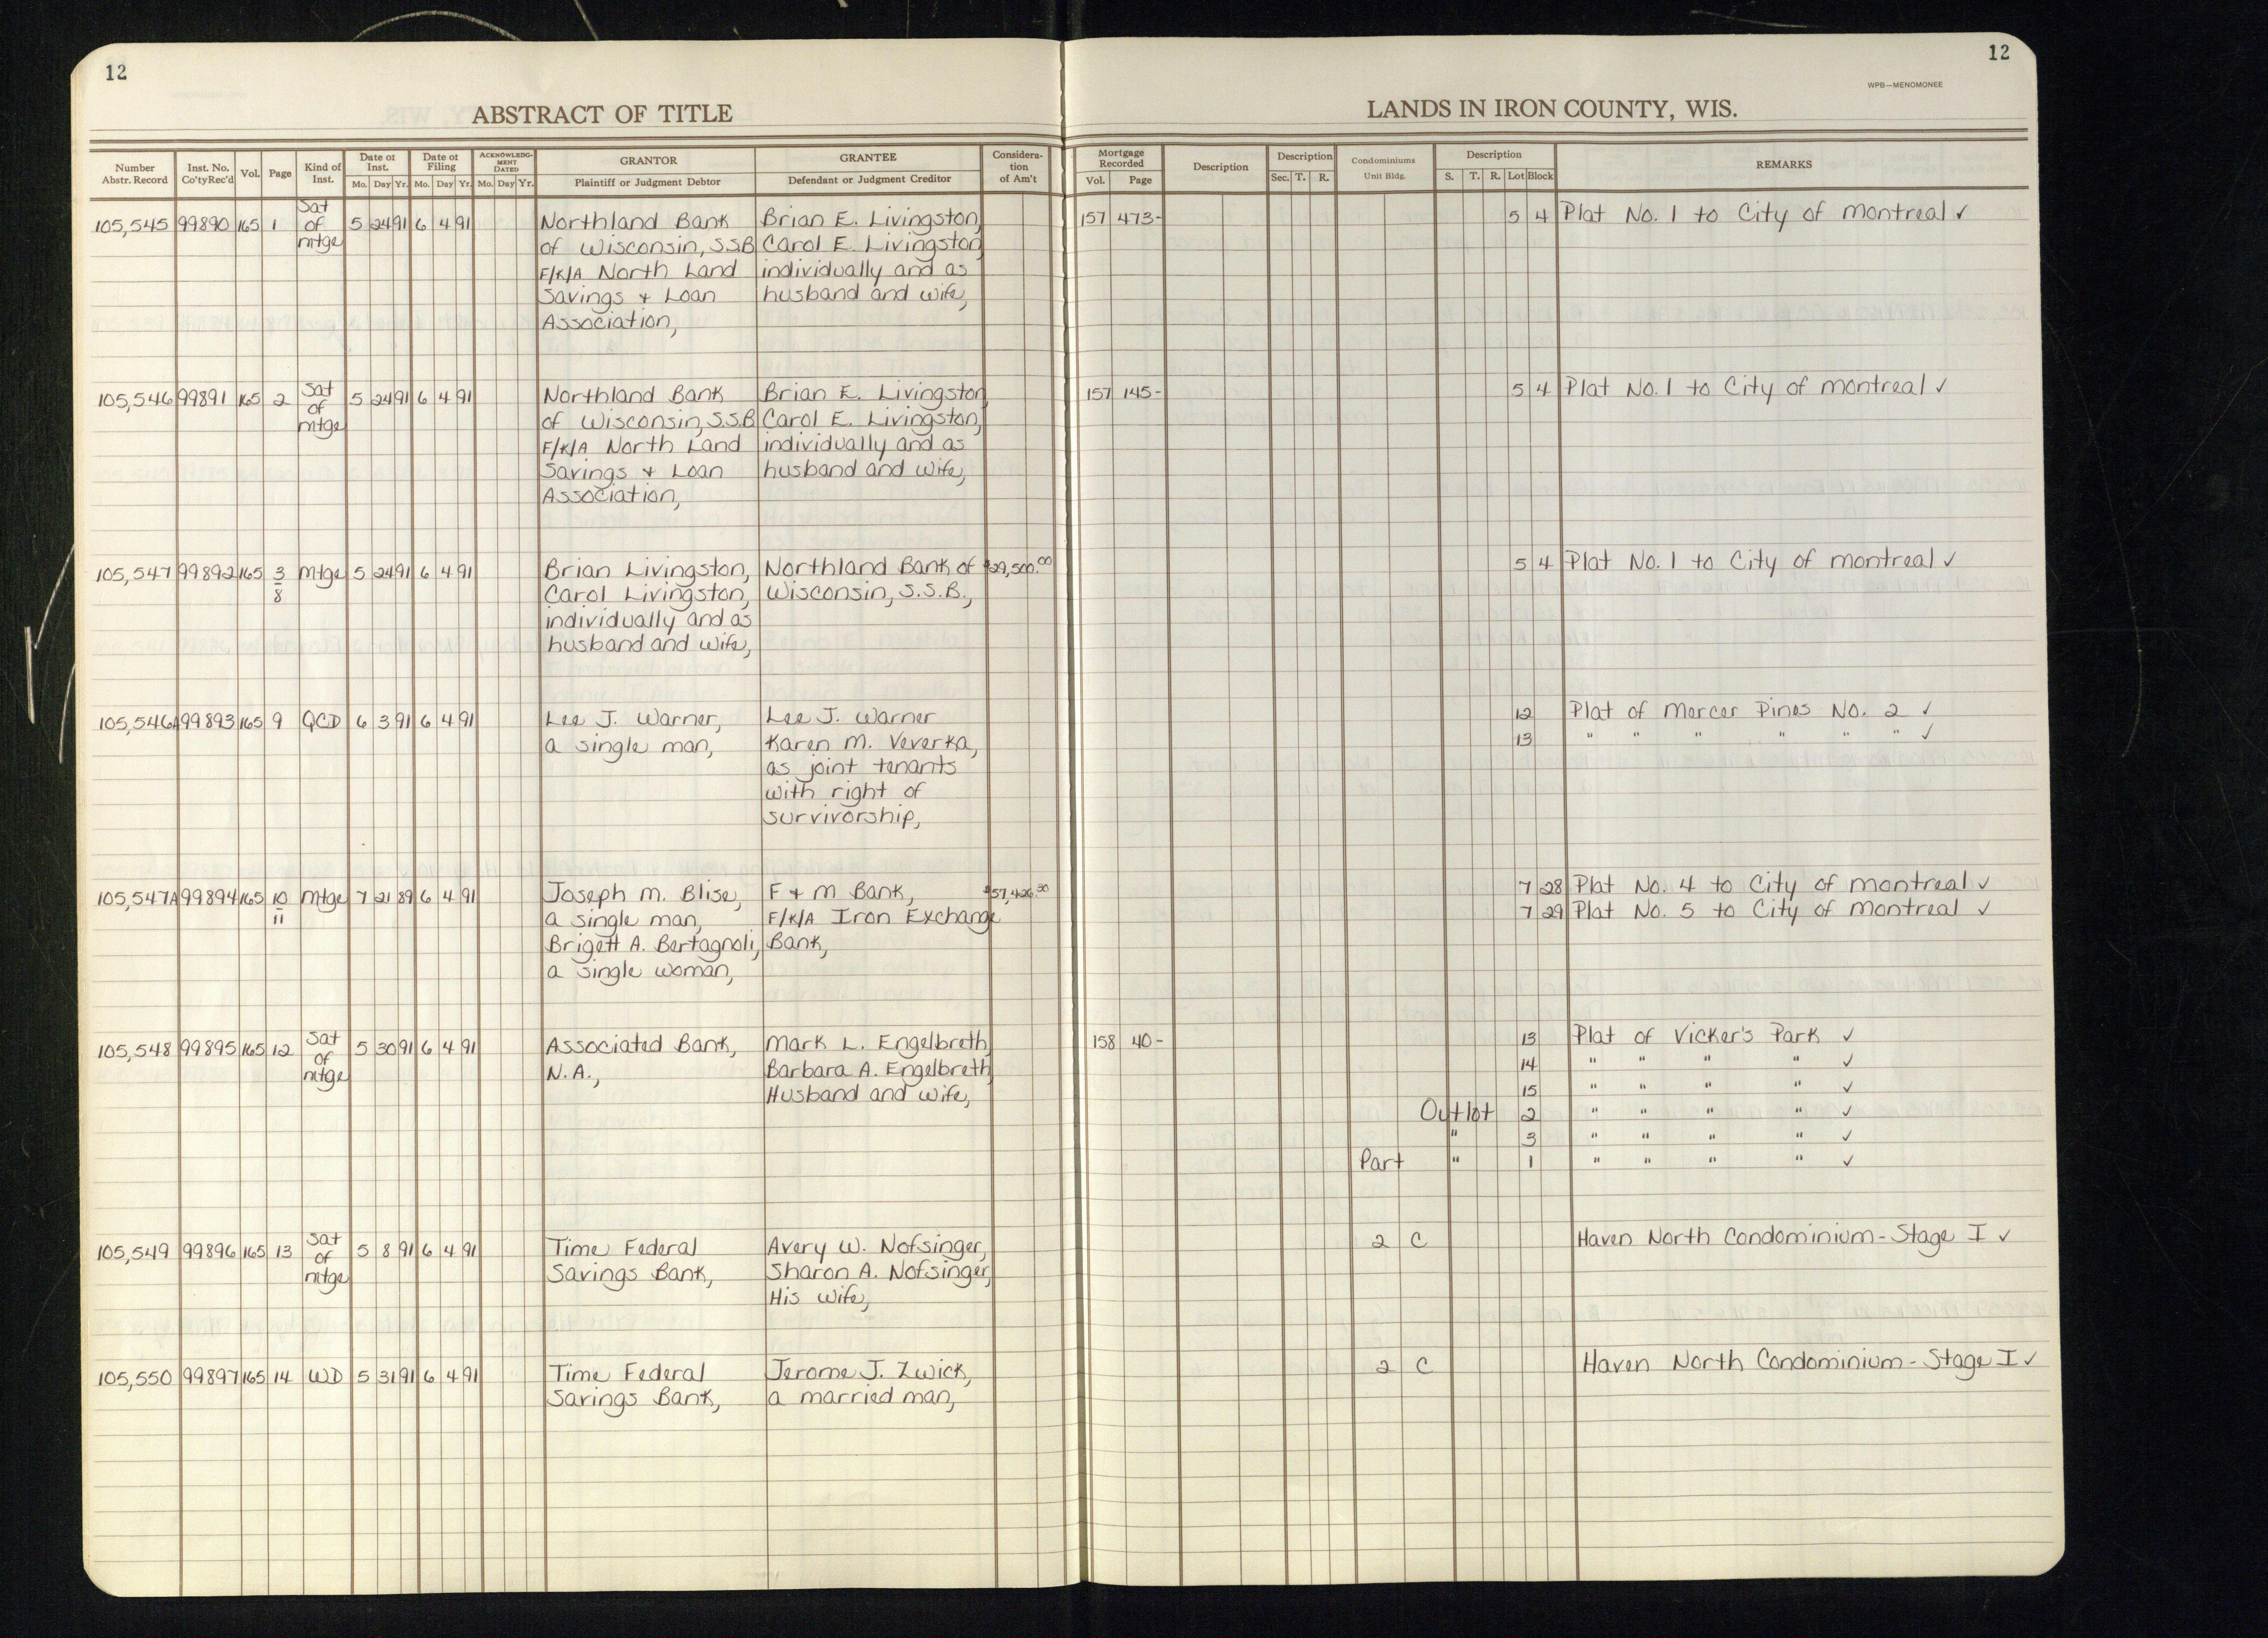 12
12
WPB—MENOMONEE
ABSTRACT OF TITLE
LANDS IN IRON COUNTY, WIS.
Number Abstr. Record | Inst. No. Co'tyRec'd | Vol. | Page | Kind of Inst. | Date of Inst. Mo. Day Yr. | Date of Filing Mo. Day Yr. | ACKNOWLEDGMENT DATED Mo. Day Yr. | GRANTOR Plaintiff or Judgment Debtor | GRANTEE Defendant or Judgment Creditor | Consideration of Am't | Mortgage Recorded Vol. Page | Description | Description Sec. T. R. | Condominiums Unit Bldg. | Description S. T. R. Lot Block | REMARKS
105,545 99890 165 1 Sat of mtge 5 24 91 6 4 91 Northland Bank Brian E. Livingston, 157 473- 5 4 Plat No. 1 to City of Montreal ✓
of Wisconsin, S.S.B Carol E. Livingston
F/K/A North Land individually and as
Savings + Loan husband and wife,
Association,
105,546 99891 165 2 Sat of mtge 5 24 91 6 4 91 Northland Bank Brian E. Livingston 157 145- 5 4 Plat No. 1 to City of Montreal ✓
of Wisconsin, S.S.B Carol E. Livingston,
F/K/A North Land individually and as
Savings + Loan husband and wife,
Association,
105,547 99892 165 3/8 Mtge 5 24 91 6 4 91 Brian Livingston, Northland Bank of $29,500.00 5 4 Plat No. 1 to City of Montreal ✓
Carol Livingston, Wisconsin, S.S.B.,
individually and as
husband and wife,
105,546A 99893 165 9 QCD 6 3 91 6 4 91 Lee J. Warner, Lee J. Warner 12 Plat of Mercer Pines No. 2 ✓
a single man, Karen M. Veverka, 13 " " " " " " ✓
as joint tenants
with right of
survivorship,
105,547A 99894 165 10/11 Mtge 7 21 89 6 4 91 Joseph M. Blise, F + M Bank, $57,426.30 7 28 Plat No. 4 to City of Montreal ✓
a single man, F/K/A Iron Exchange 7 29 Plat No. 5 to City of Montreal ✓
Brigett A. Bertagnoli, Bank,
a single woman,
105,548 99895 165 12 Sat of mtge 5 30 91 6 4 91 Associated Bank, Mark L. Engelbreth, 158 40- 13 Plat of Vicker's Park ✓
N.A., Barbara A. Engelbreth 14 " " " " ✓
Husband and wife, 15 " " " " ✓
Outlot 2 " " " " ✓
" 3 " " " " ✓
Part " 1 " " " " ✓
105,549 99896 165 13 Sat of mtge 5 8 91 6 4 91 Time Federal Avery W. Nofsinger, 2 C Haven North Condominium - Stage I ✓
Savings Bank, Sharon A. Nofsinger,
His wife,
105,550 99897 165 14 WD 5 31 91 6 4 91 Time Federal Jerome J. Zwick, 2 C Haven North Condominium - Stage I ✓
Savings Bank, a married man,